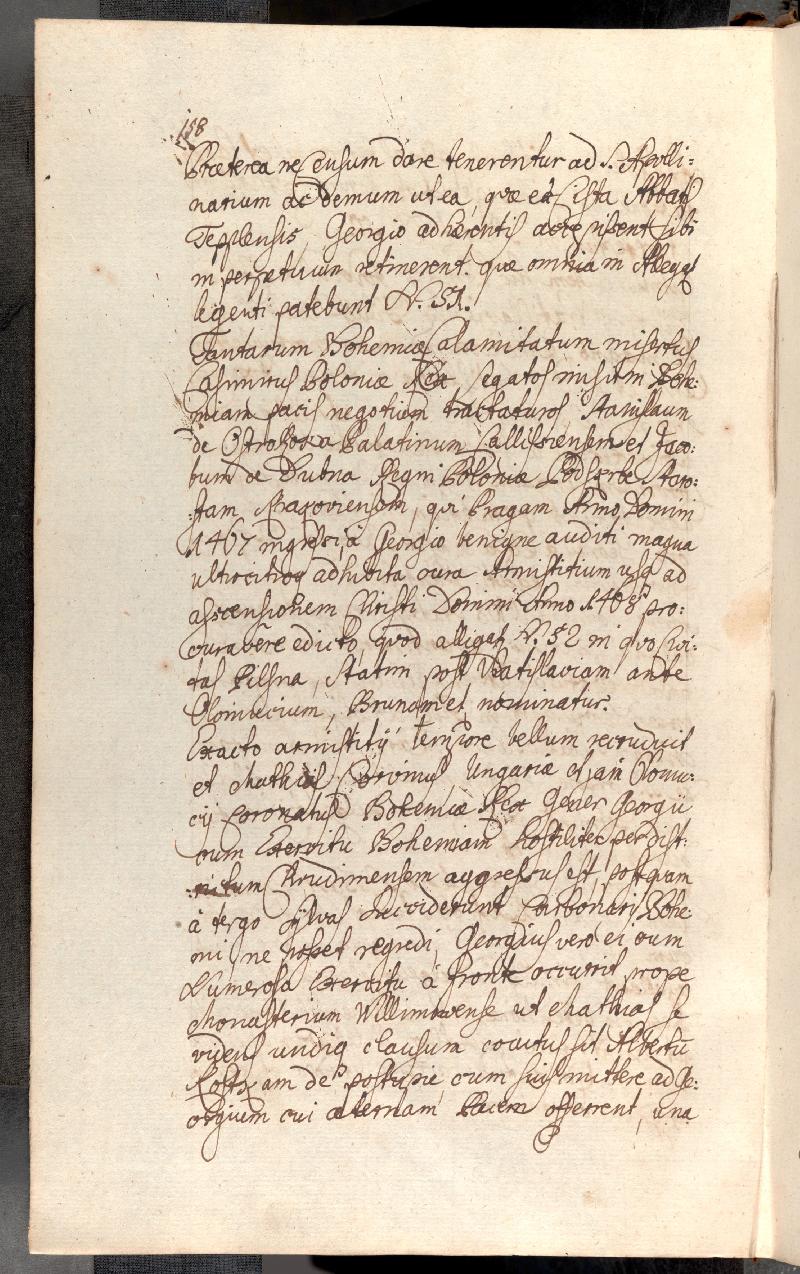 158
Præterea ne Censum dare tenerentur ad S. Apolli:
narium ac demum ut ea, quæ ex Cista Abbatis
Tepplensis, Georgio adhærentis accepissent sibi
in perpetuum retinerent. quæ omnia in Allegat
legenti patebunt N. 51.
Tantarum Bohemiæ Calamitatum misertus
Casimirus Poloniæ Rex, Legatos misit in Bohe:
miam pacis negotium tractaturos Stanislaum
de Ostroho Palatinum Callissiensem et Jaco:
bum de Dubna Regni Poloniæ Staro:
stam, qui Pragam Anno Domini
1467 ingressi, à Georgio benigne auditi magna
ultrocitroq adhibita cura Armistitium usq ad
ascensionem Christi Domini Anno 1468 pro:
curavêre edicto, quod alligat N. 52 in quo Civi:
tas Pilsna, Statim post Vratislaviam ante
Olomucium, Brunam et nominatur.
Exacto armistitij tempore bellum recruduit
et Mathias Corvinus Ungariæ et jam Olomu:
cij Coronatus Bohemiæ Rex Gener Georgii
cum Exercitu Bohemiam hostiliter per dist:
rictum Chrudimensem aggressus est, postquam
à tergo sylvas Carbonarij Bohe
mi, ne posset regredi, Georgius vero ei cum
Numeroso Exercitu à fronte occurrit prope
Monasterium Willimowense ut Mathias se
videns undiq clausum coactus sit Albertū
Kostkam de postupic cum suis mittere ad Ge:
orgium cui æternam Pacem offerrent, una